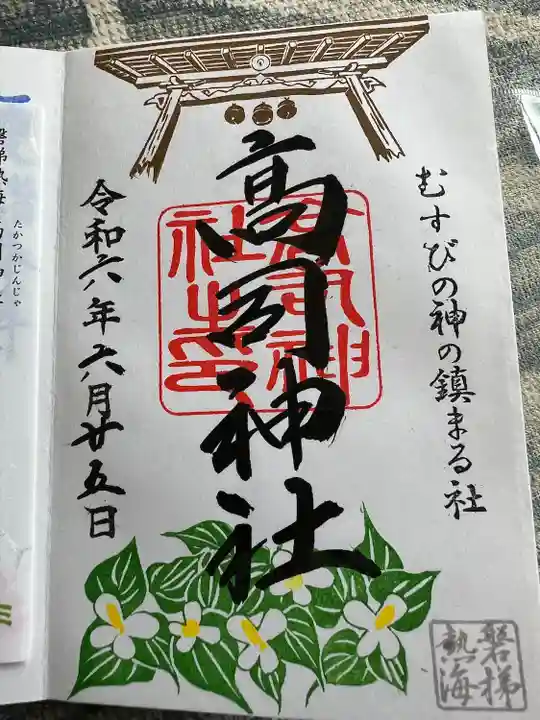 むすびの神の鎮まる社
高司神社
高司神社之印
令和六年六月廿五日
磐梯熱海
たかつかじんじゃ